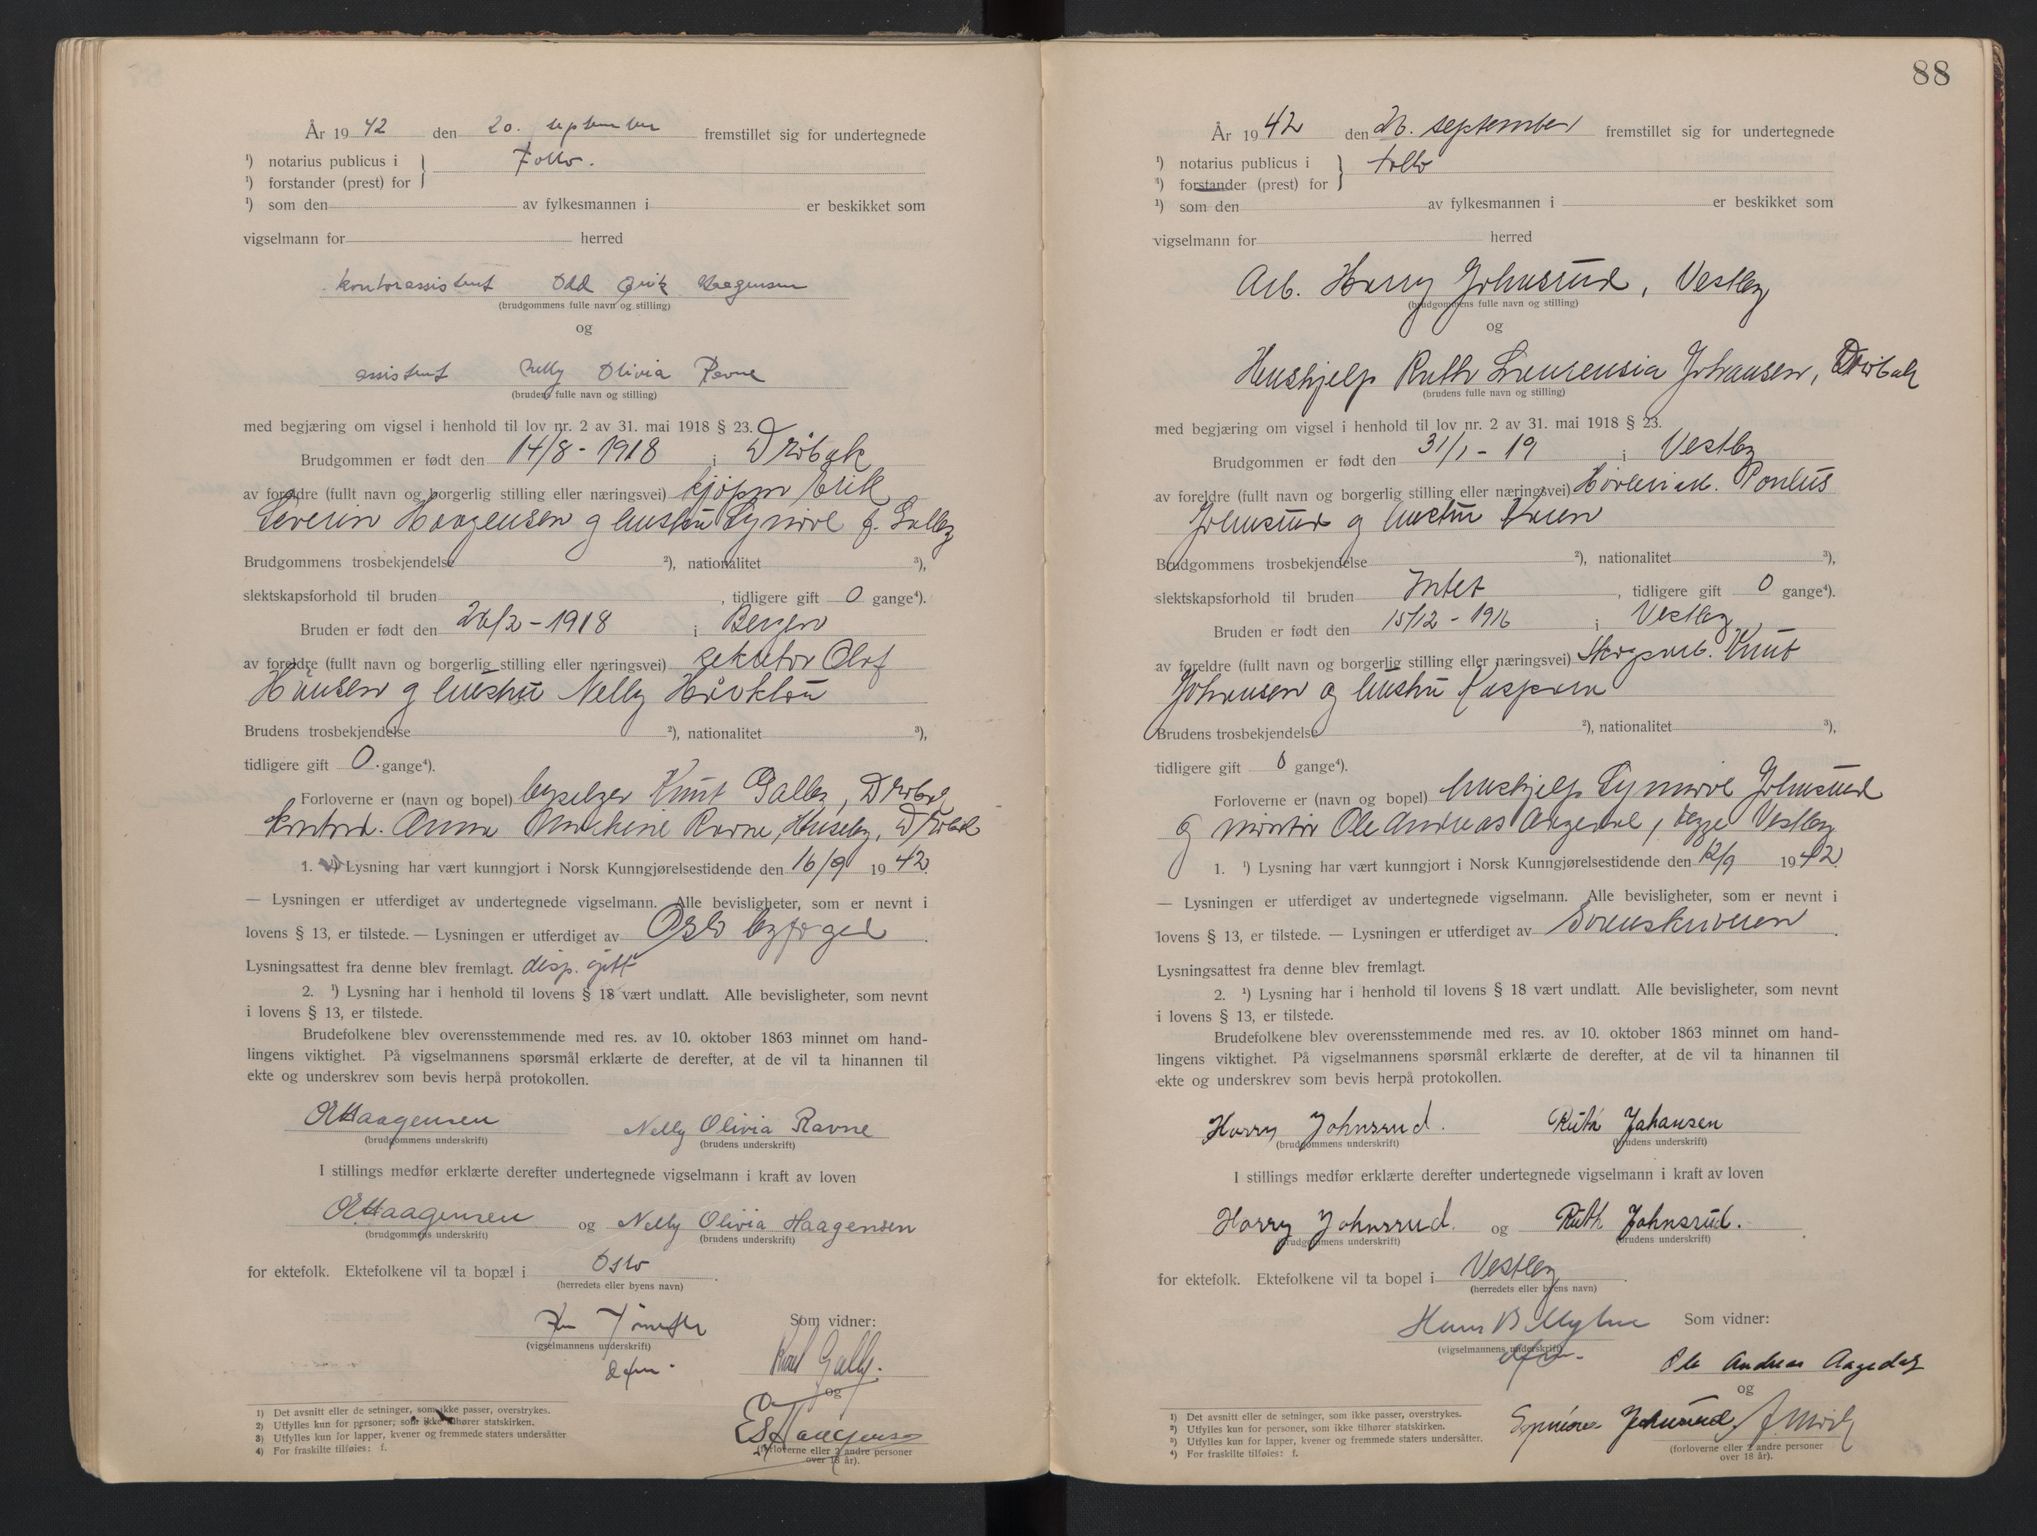 År 1942 den 20. september fremstillet sig for undertegnede
¹) notarius publicus i
Follo.
¹) forstander (prest) for
¹) som den av fylkesmannen i er beskikket som
vigselmann for herred
kontorassistent Odd Erik Haagensen
(brudgommens fulle navn og stilling)
og
assistent Nelly Olivia Ravne
(brudens fulle navn og stilling)
med begjæring om vigsel i henhold til lov nr. 2 av 31. mai 1918 § 23.
Brudgommen er født den 14/8 - 1918 i Drøbak
av foreldre (fullt navn og borgerlig stilling eller næringsvei) kjøpm Erik
Severin Haagensen og hustru Synnøve f. Galby
Brudgommens trosbekjendelse ²), nationalitet ³),
slektskapsforhold til bruden , tidligere gift 0 gange⁴).
Bruden er født den 26/2 - 1918 i Bergen
av foreldre (fullt navn og borgerlig stilling eller næringsvei) Olaf
Hansen og hustru Nelly
Brudens trosbekjendelse ²), nationalitet ³),
tidligere gift 0. gange⁴).
Forloverne er (navn og bopel) Knut Galby, Drøbak
Anna Ravne, Huseby, Drøbak
1. ¹) Lysning har vært kunngjort i Norsk Kunngjørelsestidende den 16/9 1942.
— Lysningen er utferdiget av undertegnede vigselmann. Alle bevisligheter, som er nevnt i
lovens § 13, er tilstede. — Lysningen er utferdiget av Oslo byfoged.
Lysningsattest fra denne blev fremlagt. disp. gitt
2. ¹) Lysning har i henhold til lovens § 18 vært undlatt. Alle bevisligheter, som nevnt
i lovens § 13, er tilstede.
Brudefolkene blev overensstemmende med res. av 10. oktober 1863 minnet om hand-
lingens viktighet. På vigselmannens spørsmål erklærte de derefter, at de vil ta hinannen til
ekte og underskrev som bevis herpå protokollen.
OEHaagensen Nelly Olivia Ravne
(brudgommens underskrift) (brudens underskrift)
I stillings medfør erklærte derefter undertegnede vigselmann i kraft av loven
OEHaagensen og Nelly Olivia Haagensen
(brudgommens underskrift) (brudens underskrift)
for ektefolk. Ektefolkene vil ta bopæl i Oslo.
(herredets eller byens navn)
Som vidner:
(vigselmannens underskrift)
Knut Galby.
og
ES Haagensen
(forloverne eller 2 andre personer
over 18 år).
1) Det avsnitt eller de setninger, som ikke passer, overstrykes.
2) Utfylles kun for personer, som ikke tilhører statskirken.
3) Utfylles kun for lapper, kvener og fremmede staters undersåtter
4) For fraskilte tilføies: f.
88
År 1942 den 26. september fremstillet sig for undertegnede
¹) notarius publicus i
Follo
¹) forstander (prest) for
¹) som den av fylkesmannen i er beskikket som
vigselmann for herred
Arb. Harry Johnsrud, Vestby
(brudgommens fulle navn og stilling)
og
Hushjelp Ruth Laurensia Johansen, Drøbak
(brudens fulle navn og stilling)
med begjæring om vigsel i henhold til lov nr. 2 av 31. mai 1918 § 23.
Brudgommen er født den 31/1 - 19 i Vestby
av foreldre (fullt navn og borgerlig stilling eller næringsvei) Pontus
Johnsrud og hustru Karen
Brudgommens trosbekjendelse ²), nationalitet ³),
slektskapsforhold til bruden Intet , tidligere gift 0 gange⁴).
Bruden er født den 15/12 - 1916 i Vestby
av foreldre (fullt navn og borgerlig stilling eller næringsvei) Skogsarb. Knut
Johansen og hustru Kaspara
Brudens trosbekjendelse ²), nationalitet ³),
tidligere gift 0 gange⁴).
Forloverne er (navn og bopel) hushjelp Synnøve Johnsrud
og montør Ole Andreas Aagedal, Vestby
1. ¹) Lysning har vært kunngjort i Norsk Kunngjørelsestidende den 12/9 1942.
— Lysningen er utferdiget av undertegnede vigselmann. Alle bevisligheter, som er nevnt i
lovens § 13, er tilstede. — Lysningen er utferdiget av Sorenskriveren.
Lysningsattest fra denne blev fremlagt.
2. ¹) Lysning har i henhold til lovens § 18 vært undlatt. Alle bevisligheter, som nevnt
i lovens § 13, er tilstede.
Brudefolkene blev overensstemmende med res. av 10. oktober 1863 minnet om hand-
lingens viktighet. På vigselmannens spørsmål erklærte de derefter, at de vil ta hinannen til
ekte og underskrev som bevis herpå protokollen.
Harry Johnsrud. Ruth Johansen
(brudgommens underskrift) (brudens underskrift)
I stillings medfør erklærte derefter undertegnede vigselmann i kraft av loven
Harry Johnsrud. og Ruth Johnsrud.
(brudgommens underskrift) (brudens underskrift)
for ektefolk. Ektefolkene vil ta bopel i Vestby.
(herredets eller byens navn)
Hans Som vidner:
(vigselmannens underskrift)
Ole Andreas Aagedal
og
Synnøve Johnsrud
(forloverne eller 2 andre personer
over 18 år).
¹) Det avsnitt eller de setninger, som ikke passer, overstrykes.
²) Utfylles kun for personer, som ikke tilhører statskirken.
³) Utfylles kun for lapper, kvener og fremmede staters undersåtter.
⁴) For fraskilte tilføies: f.